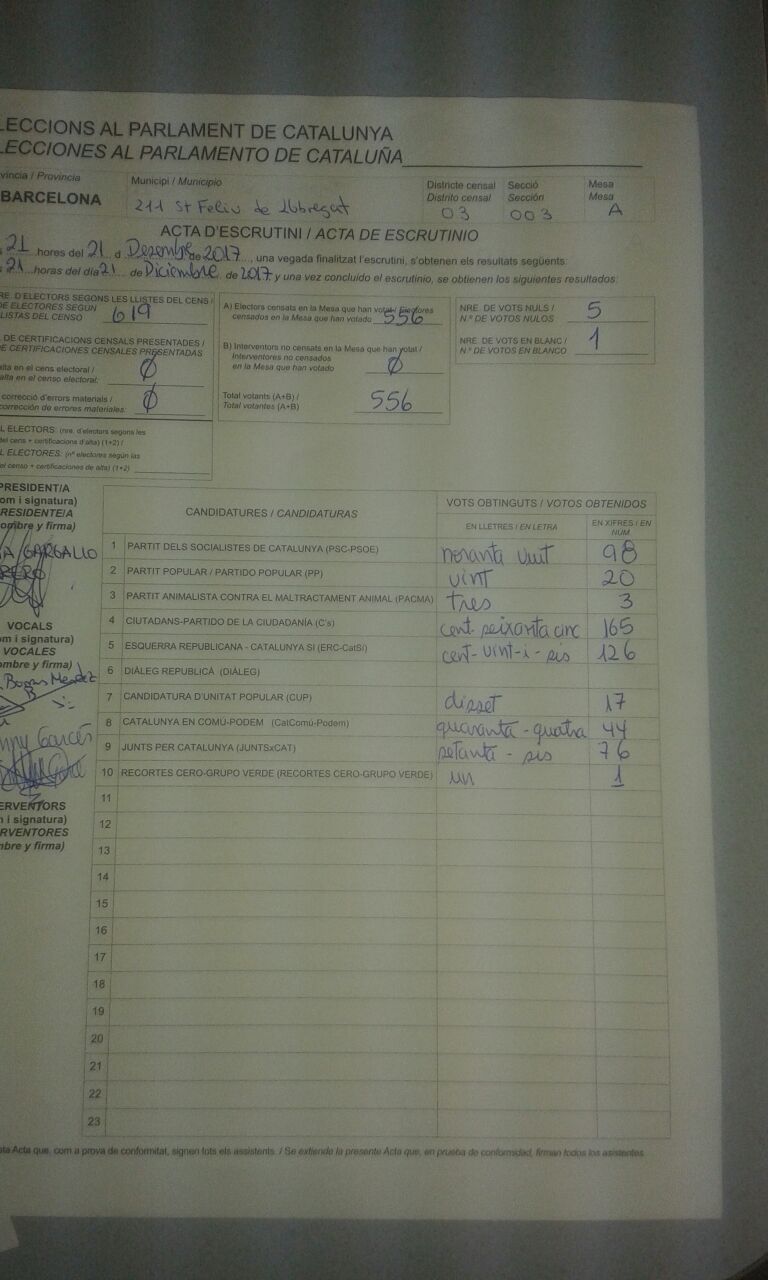 LECCIONS AL PARLAMENT DE CATALUNYA
LECCIONES AL PARLAMENTO DE CATALUÑA
víncia / Provincia
BARCELONA
Municipi / Municipio
211 St Feliu de Llobregat
Districte censal
Distrito censal
03
Secció
Sección
003
Mesa
Mesa
A
ACTA D'ESCRUTINI / ACTA DE ESCRUTINIO
21 hores del 21 d Desembre de 2017, una vegada finalitzat l'escrutini, s'obtenen els resultats següents:
21 horas del día 21 de Diciembre de 2017 y una vez concluido el escrutinio, se obtienen los siguientes resultados:
RE. D'ELECTORS SEGONS LES LLISTES DEL CENS /
DE ELECTORES SEGÚN
LISTAS DEL CENSO
619
DE CERTIFICACIONS CENSALS PRESENTADES /
DE CERTIFICACIONES CENSALES PRESENTADAS
lta en el cens electoral /
alta en el censo electoral:
0
correcció d'errors materials /
corrección de errores materiales:
0
L ELECTORS: (nre. d'electors segons les
del cens + certificacions d'alta) (1+2) /
L ELECTORES: (nº electores según las
el censo + certificaciones de alta) (1+2)
A) Electors censats en la Mesa que han votat / Electores
censados en la Mesa que han votado
556
B) Interventors no censats en la Mesa que han votat /
Interventores no censados
en la Mesa que han votado
0
Total votants (A+B) /
Total votantes (A+B)
556
NRE. DE VOTS NULS /
N.º DE VOTOS NULOS
5
NRE. DE VOTS EN BLANC /
N.º DE VOTOS EN BLANCO
1
PRESIDENT/A
om i signatura)
RESIDENTE/A
ombre y firma)
GARGALLO
VOCALS
m i signatura)
VOCALES
ombre y firma)
Garcés
ERVENTORS
m i signatura)
RVENTORES
mbre y firma)
CANDIDATURES / CANDIDATURAS
VOTS OBTINGUTS / VOTOS OBTENIDOS
EN LLETRES / EN LETRA
EN XIFRES / EN NÚM
1 PARTIT DELS SOCIALISTES DE CATALUNYA (PSC-PSOE) noranta vuit 98
2 PARTIT POPULAR / PARTIDO POPULAR (PP) vint 20
3 PARTIT ANIMALISTA CONTRA EL MALTRACTAMENT ANIMAL (PACMA) tres 3
4 CIUTADANS-PARTIDO DE LA CIUDADANÍA (C's) cent seixanta cinc 165
5 ESQUERRA REPUBLICANA - CATALUNYA SÍ (ERC-CatSí) cent-vint-i-sis 126
6 DIÀLEG REPUBLICÀ (DIÀLEG)
7 CANDIDATURA D'UNITAT POPULAR (CUP) disset 17
8 CATALUNYA EN COMÚ-PODEM (CatComú-Podem) quaranta-quatre 44
9 JUNTS PER CATALUNYA (JUNTSxCAT) setanta-sis 76
10 RECORTES CERO-GRUPO VERDE (RECORTES CERO-GRUPO VERDE) un 1
11
12
13
14
15
16
17
18
19
20
21
22
23
ta Acta que, com a prova de conformitat, signen tots els assistents. / Se extiende la presente Acta que, en prueba de conformidad, firman todos los asistentes.